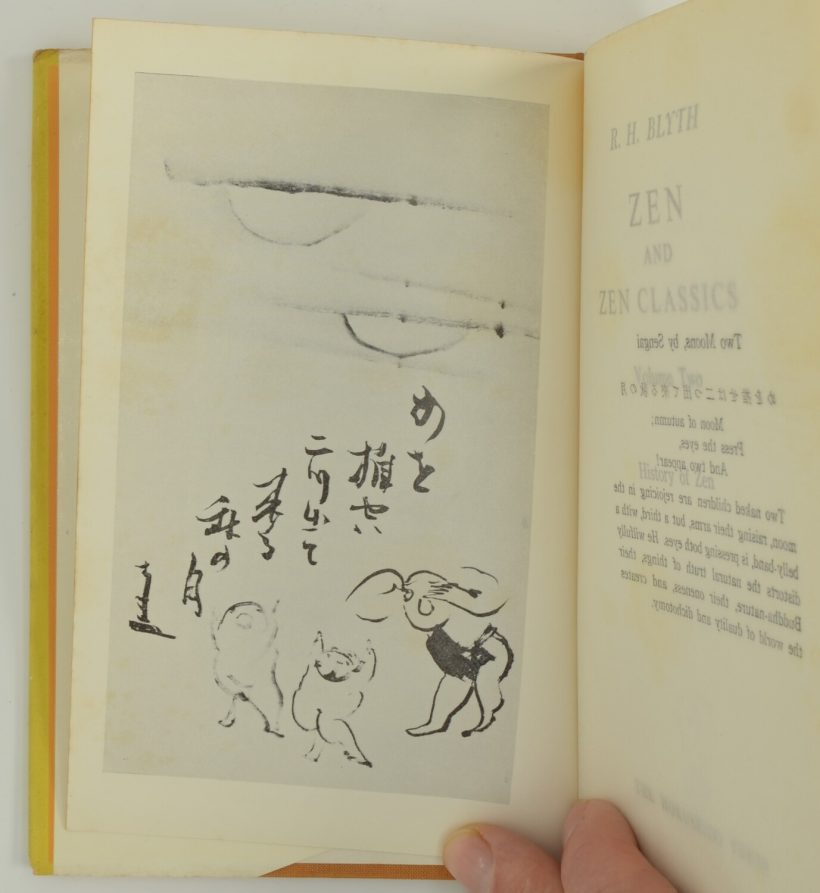 めを
推せは
二つ出て
来る
秋の
月
R. H. BLYTH
ZEN
AND
ZEN CLASSICS
Volume Two
History of Zen
THE HOKUSEIDO PRESS
Two Moons, by Sengai
めを推せは二つ出て来る秋の月
Moon of autumn;
Press the eyes,
And two appear!
Two naked children are rejoicing in the
moon, raising their arms, but a third, with a
belly-band, is pressing both eyes. He wilfully
distorts the natural truth of things, their
Buddha-nature, their oneness, and creates
the world of duality and dichotomy.